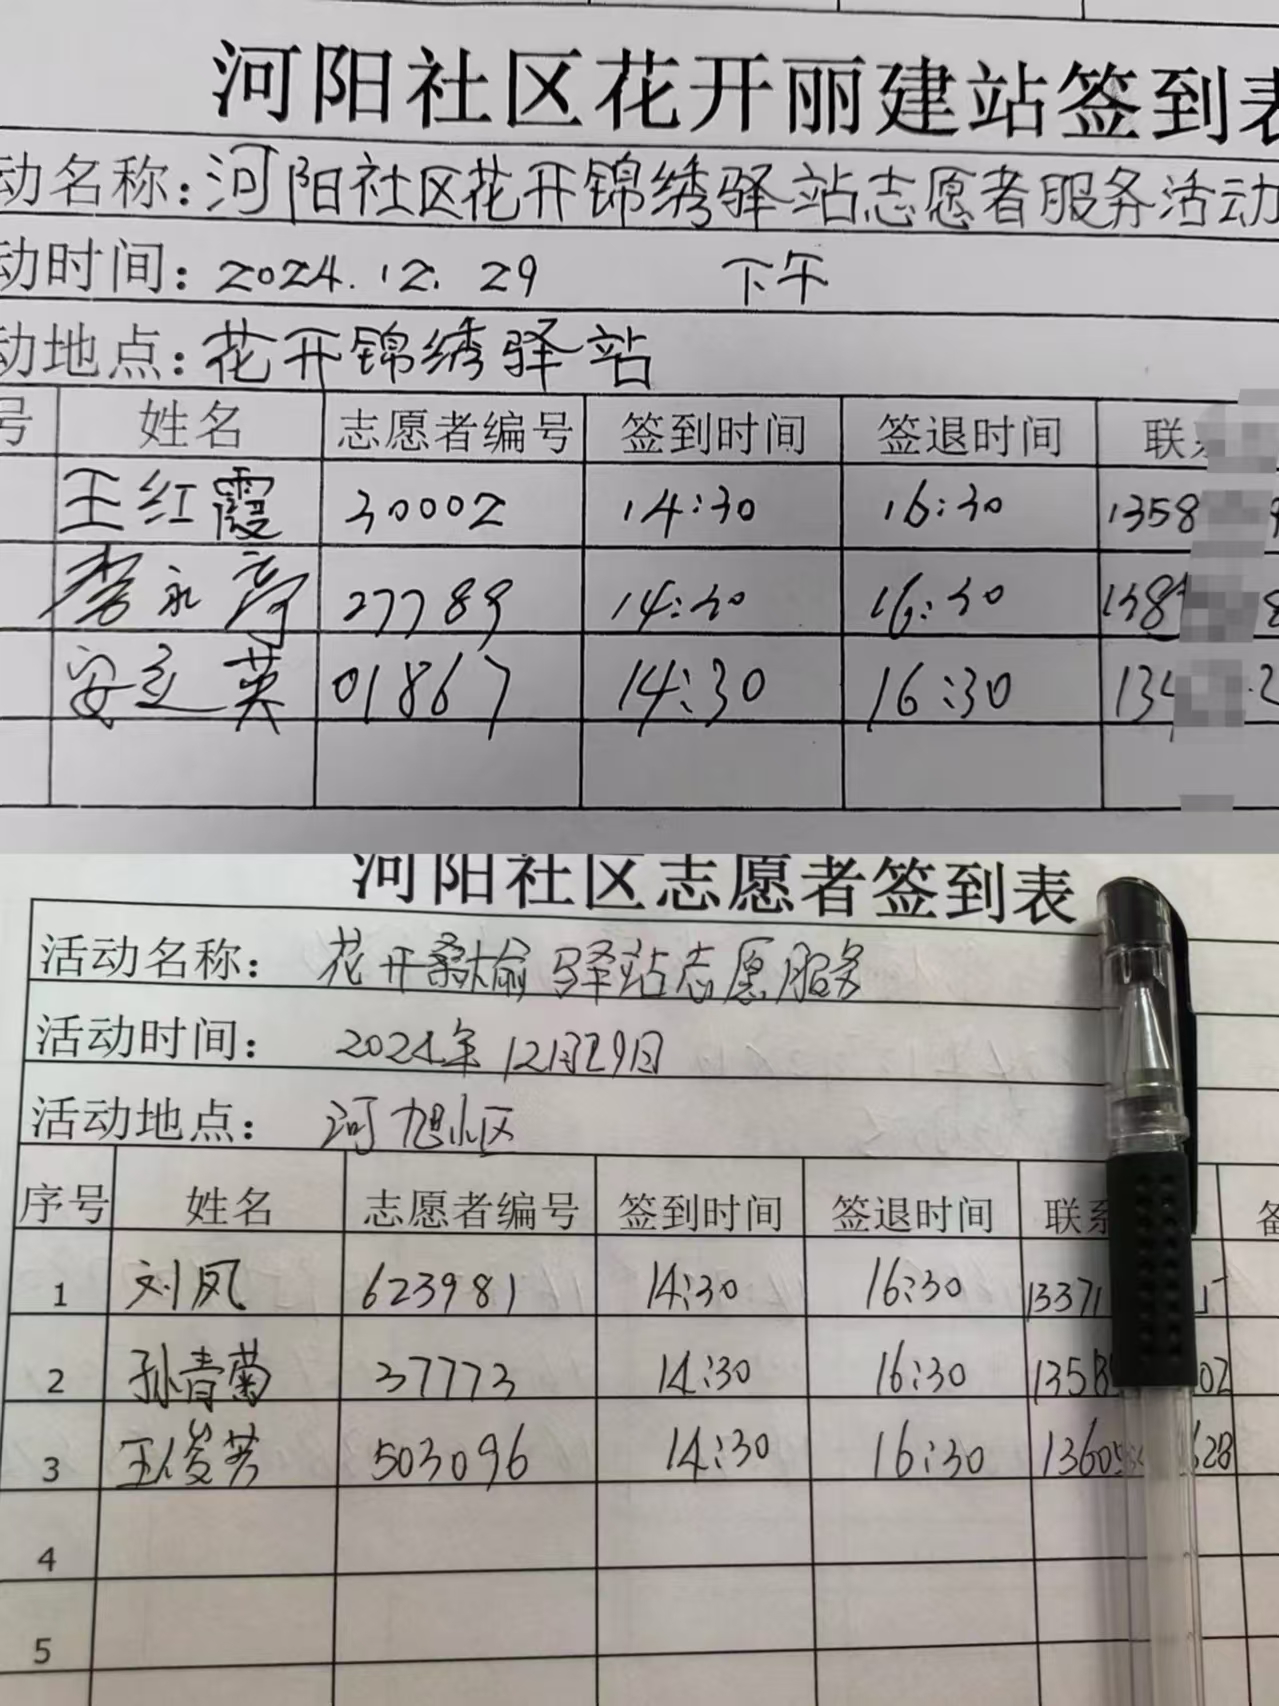 河阳社区花开丽建站签到表
动名称：河阳社区花开锦绣驿站志愿者服务活动
动时间：2024.12.29 下午
动地点：花开锦绣驿站
号 姓名 志愿者编号 签到时间 签退时间 联系
王红霞 30002 14:30 16:30 1358
李永 27789 14:30 16:30 138
安立英 01867 14:30 16:30 134
河阳社区志愿者签到表
活动名称：花开桑榆驿站志愿服务
活动时间：2024年12月29日
活动地点：河旭小区
序号 姓名 志愿者编号 签到时间 签退时间 联系 备
1 刘凤 623981 14:30 16:30 13371
2 孙青菊 37773 14:30 16:30 1358 02
3 王俊芳 503096 14:30 16:30 13605 628
4
5